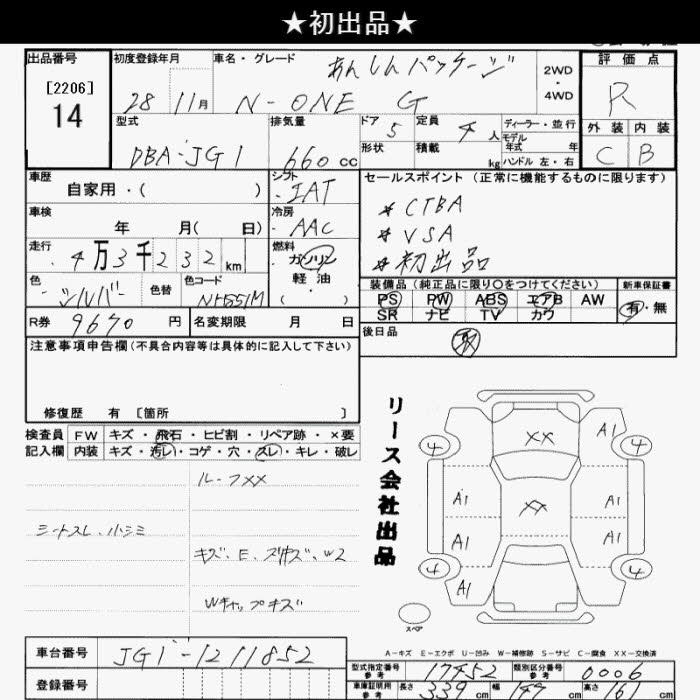 ★初出品★
出品番号
[2206]
14
初度登録年月
28 11月
車名・グレード
あんしんパッケージ
N-ONE G
2WD
・
4WD
評価点
R
外装 内装
C B
型式
DBA-JG1
排気量
660 cc
ドア 5
形状
定員 4 人
積載 kg
ディーラー・並行
モデル
年式 年
ハンドル 左・右
車歴
自家用・( )
シフト
IAT
セールスポイント (正常に機能するものに限ります)
* CTBA
* VSA
* 初出品
車検
年 月( 日)
冷房
AAC
走行
4万3千232km
燃料
ガソリン
軽油
・( )
色
シルバー
色替
色コード
NH551M
装備品 (純正品に限り○をつけてください)
PS PW ABS エアB AW
SR ナビ TV カワ
新車保証書
有・無
R券 9670 円
名変期限 月 日
後日品
注意事項申告欄(不具合内容等は具体的に記入して下さい)
修復歴 有 [箇所 ]
検査員
記入欄
FW キズ・飛石・ヒビ割・リペア跡・×要
内装 キズ・汚レ・コゲ・穴・スレ・キレ・破レ
ルーフXX
シートスレ、小シミ
キズ、E、スリキズ、W2
Wキャップキズ
リース会社出品
XX
XX
A1
A1
A1
A1
A1
A1
4
4
4
4
スペア
A-キズ E-エクボ U-凹み W-補修跡 S-サビ C-腐食 XX-交換済
車台番号 JG1-1211852
登録番号
型式指定番号
参考
17452
類別区分番号
参考
0006
車庫証明用
参考
長さ 339 cm
幅 144 cm
高さ 161 cm